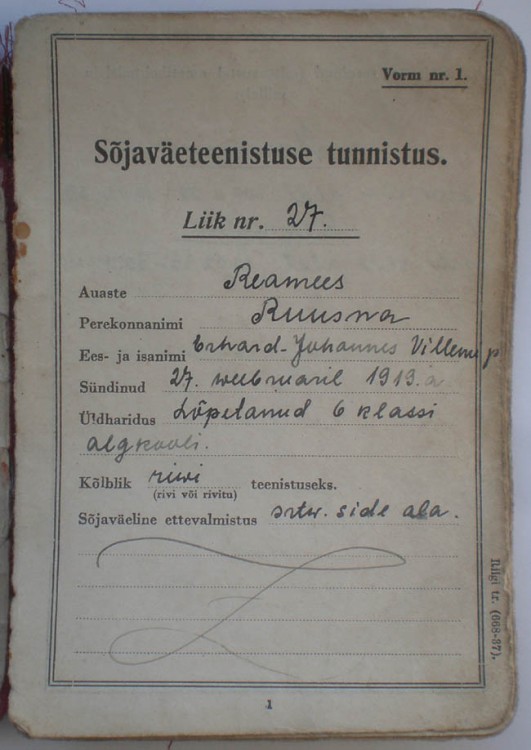 Vorm nr. 1.
Sõjaväeteenistuse tunnistus.
Liik nr. 27.
Auaste Reamees
Perekonnanimi Ruusna
Ees- ja isanimi Erhard-Johannes Villemi p
Sündinud 27. weebruaril 1913.a
Üldharidus Lõpetanud 6 klassi
algkooli.
Kõlblik riwi teenistuseks.
(rivi või rivitu)
Sõjaväeline ettevalmistus srtw. side ala.
Riigi tr. (668-37).
1